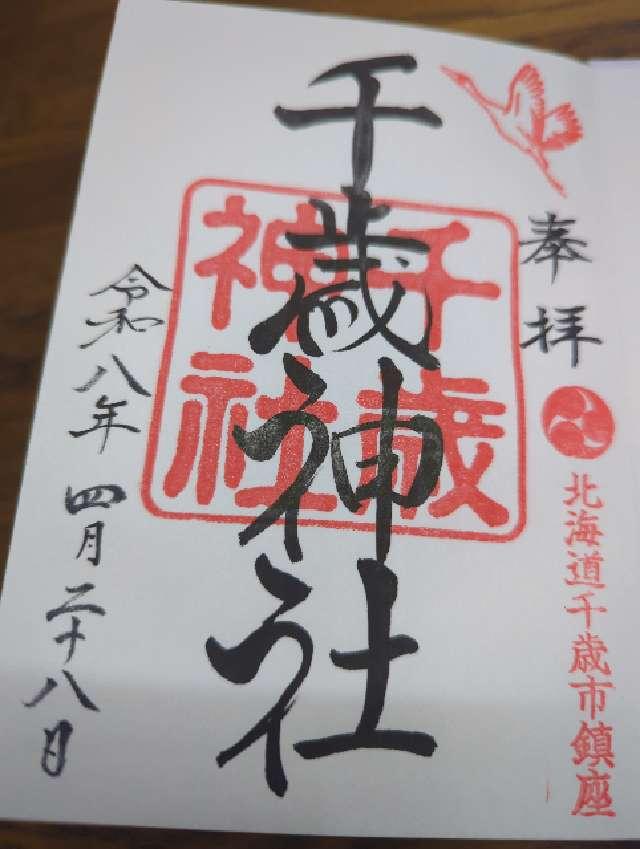 奉拝
北海道千歳市鎮座
千歳神社
千歳
神社
令和八年四月二十八日